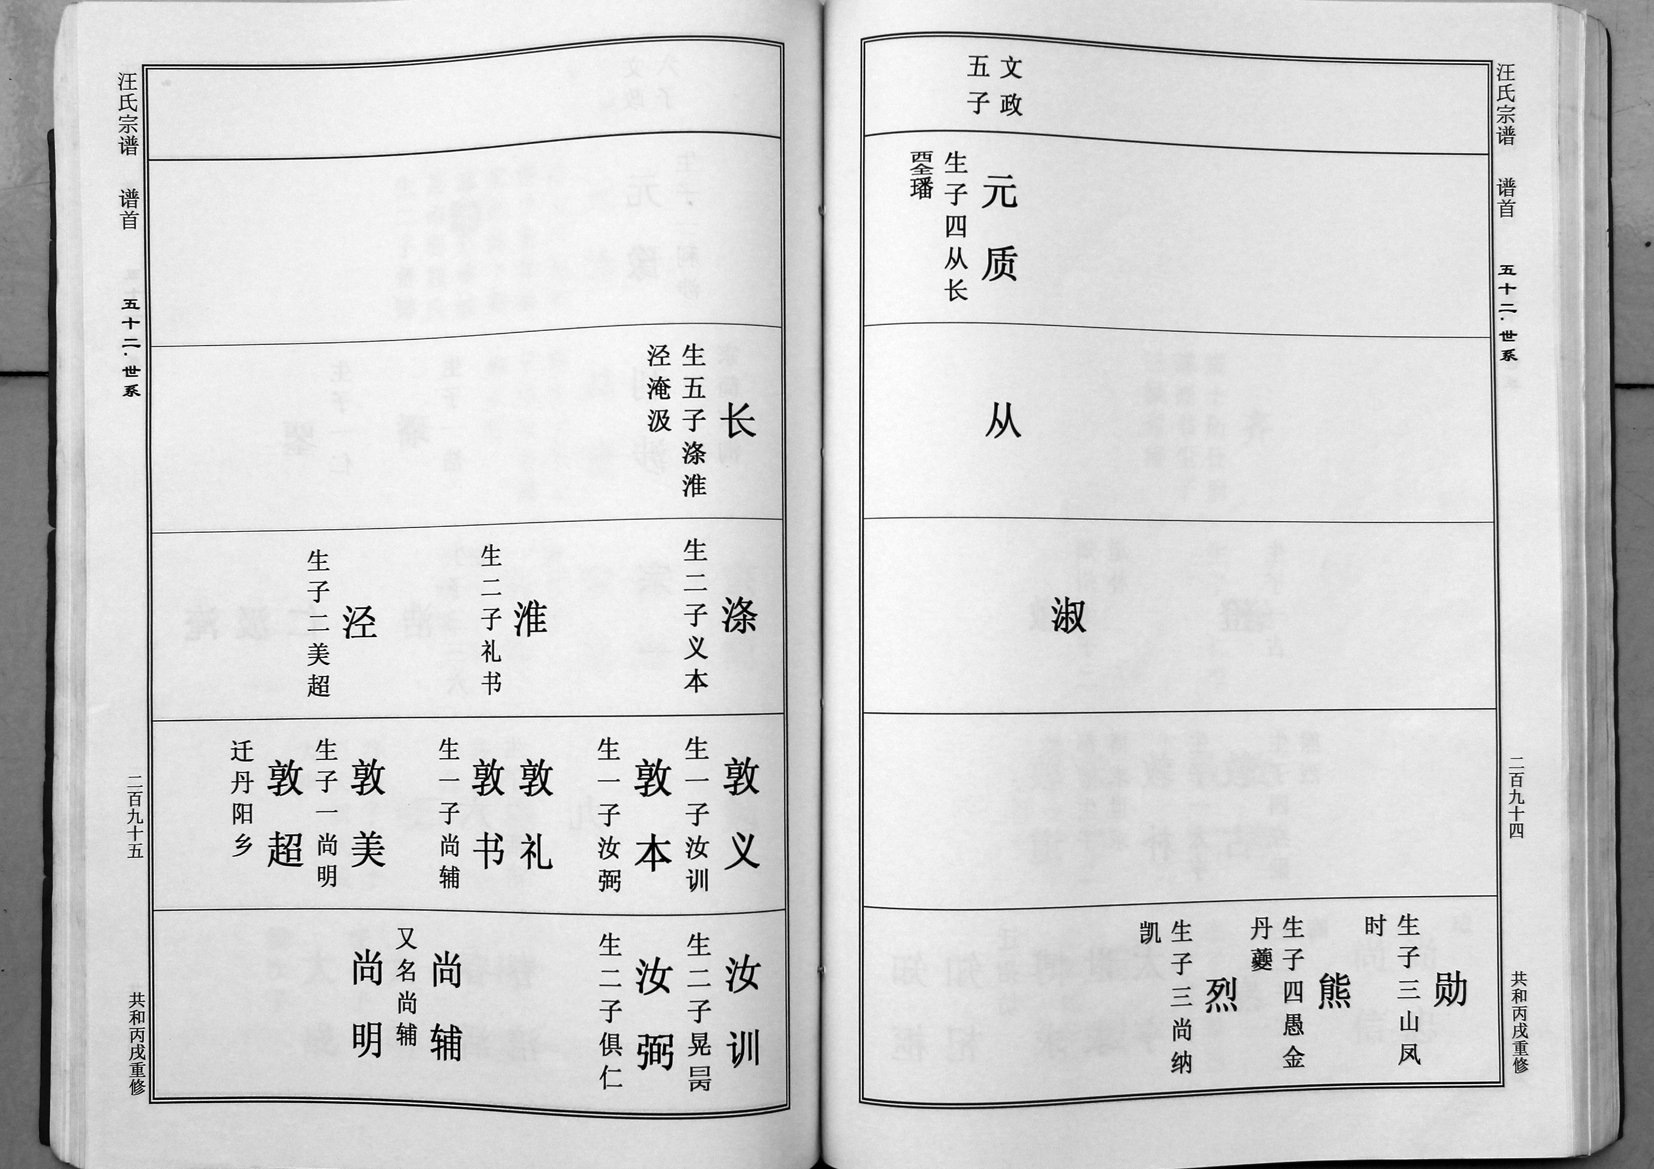 汪氏宗谱 谱首 五十二·世系 二百九十四 共和丙戌重修
文政
五子
元质
生子四从长
琞璠
从
淑
勋
生子三山凤
时
熊
生子四愚金
丹夔
烈
生子三尚纳
凯
长
生五子涤淮
泾淹汲
涤
生二子义本
淮
生二子礼书
泾
生子二美超
敦义
生一子汝训
敦本
生一子汝弼
敦礼
敦书
生一子尚辅
敦美
生子一尚明
敦超
迁丹阳乡
汝训
生二子晃昺
汝弼
生二子俱仁
尚辅
又名尚辅
尚明
汪氏宗谱 谱首 五十二·世系 二百九十五 共和丙戌重修